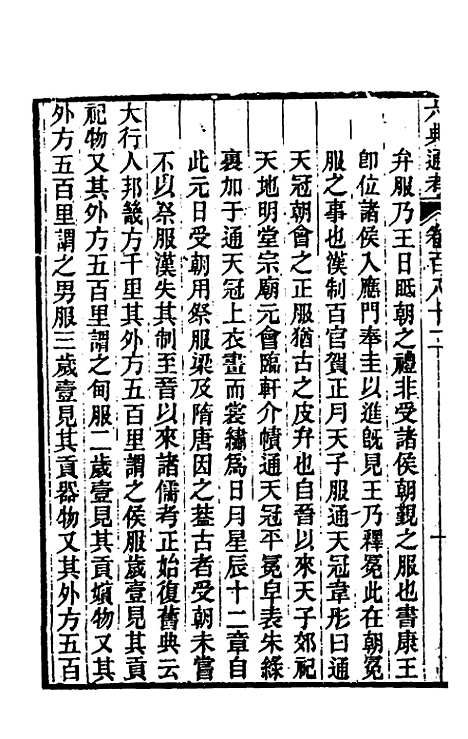 六典通考 卷百八十二
弁服乃王日眡朝之禮非受諸侯朝覲之服也書康王
卽位諸侯入應門奉圭以進旣見王乃釋冕此在朝冕
服之事也漢制百官賀正月天子服通天冠韋彤曰通
天冠朝會之正服猶古之皮弁也自晉以來天子郊祀
天地明堂宗廟元會臨軒介幘通天冠平冕皁表朱綠
裏加于通天冠上衣畫而裳繡爲日月星辰十二章自
此元日受朝用祭服梁及隋唐因之葢古者受朝未嘗
不以祭服漢失其制至晉以來諸儒考正始復舊典云
大行人邦畿方千里其外方五百里謂之侯服歲壹見其貢
祀物又其外方五百里謂之甸服二歲壹見其貢嬪物又其
外方五百里謂之男服三歲壹見其貢器物又其外方五百